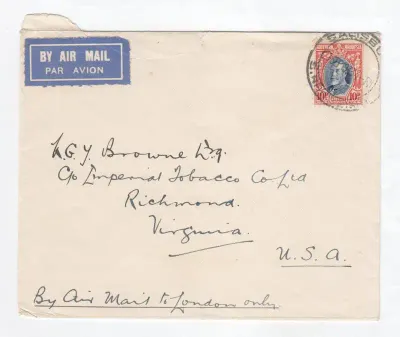 BY AIR MAIL
PAR AVION
SALISBU
10
K.G.Y. Browne Esq.
C/o Imperial Tobacco Co Ltd
Richmond.
Virginia.
U.S.A.
By Air Mail to London only